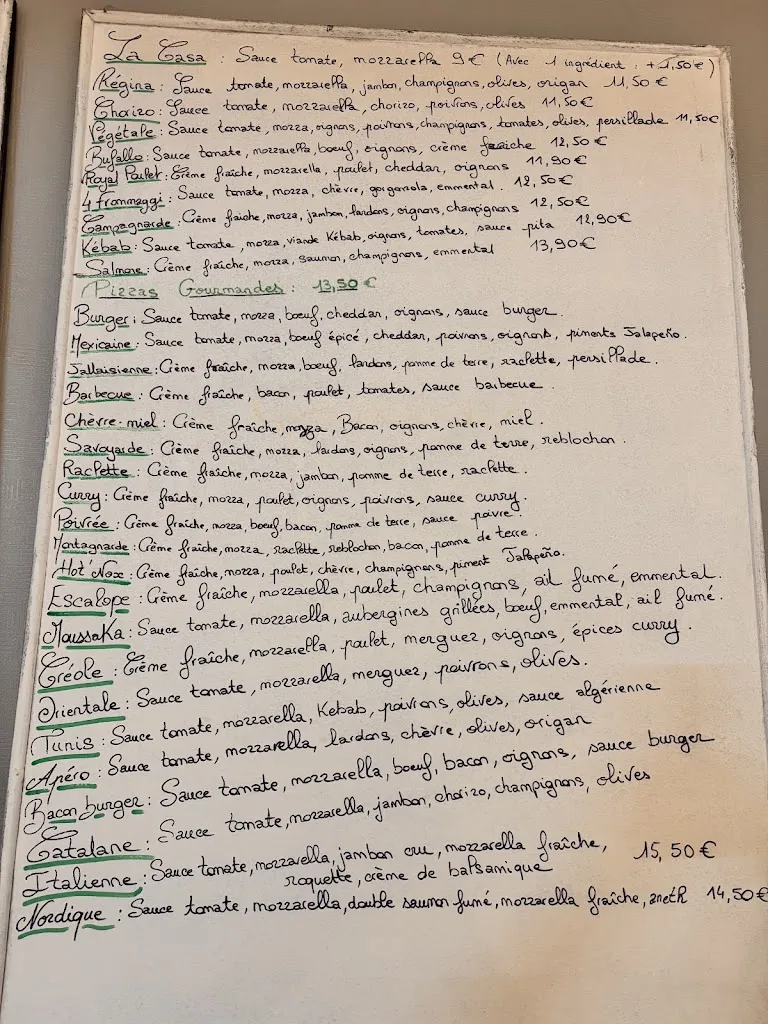 La Casa : Sauce tomate, mozzarella 9€ (Avec 1 ingrédient : +1,50€)
Régina : Sauce tomate, mozzarella, jambon, champignons, olives, origan 11,50€
Chorizo : Sauce tomate, mozzarella, chorizo, poivrons, olives 11,50€
Végétale : Sauce tomate, mozza, oignons, poivrons, champignons, tomates, olives, persillade 11,50€
Buffallo : Sauce tomate, mozzarella, boeuf, oignons, crème fraiche 12,50€
Royal Poulet : Crème fraîche, mozzarella, poulet, cheddar, oignons 11,90€
4 frommaggi : Sauce tomate, mozza, chèvre, gorgonzola, emmental. 12,50€
Campagnarde : Crème fraîche, mozza, jambon, lardons, oignons, champignons 12,50€
Kébab : Sauce tomate, mozza, viande Kébab, oignons, tomates, sauce pita 12,90€
Salmone : Crème fraîche, mozza, saumon, champignons, emmental 13,90€
Pizzas Gourmandes : 13,50€
Burger : Sauce tomate, mozza, boeuf, cheddar, oignons, sauce burger.
Mexicaine : Sauce tomate, mozza, boeuf épicé, cheddar, poivrons, oignons, piments Jalapeño.
Jallaisienne : Crème fraîche, mozza, boeuf, lardons, pomme de terre, raclette, persillade.
Barbecue : Crème fraîche, bacon, poulet, tomates, sauce barbecue.
Chèvre-miel : Crème fraîche, mozza, Bacon, oignons, chèvre, miel.
Savoyarde : Crème fraîche, mozza, lardons, oignons, pomme de terre, reblochon.
Raclette : Crème fraîche, mozza, jambon, pomme de terre, raclette.
Curry : Crème fraîche, mozza, poulet, oignons, poivrons, sauce curry.
Poivrée : Crème fraîche, mozza, boeuf, bacon, pomme de terre, sauce poivre.
Montagnarde : Crème fraîche, mozza, raclette, reblochon, bacon, pomme de terre.
Hot'Nox : Crème fraîche, mozza, poulet, chèvre, champignons, piment Jalapeño.
Escalope : Crème fraîche, mozzarella, poulet, champignons, ail fumé, emmental.
Moussaka : Sauce tomate, mozzarella, aubergines grillées, boeuf, emmental, ail fumé.
Créole : Crème fraîche, mozzarella, poulet, merguez, oignons, épices curry.
Orientale : Sauce tomate, mozzarella, merguez, poivrons, olives.
Tunis : Sauce tomate, mozzarella, Kebab, poivrons, olives, sauce algérienne
Apéro : Sauce tomate, mozzarella, lardons, chèvre, olives, origan
Bacon burger : Sauce tomate, mozzarella, boeuf, bacon, oignons, sauce burger
Catalane : Sauce tomate, mozzarella, jambon, chorizo, champignons, olives
Italienne : Sauce tomate, mozzarella, jambon cru, mozzarella fraîche, 15,50€
roquette, crème de balsamique
Nordique : Sauce tomate, mozzarella, double saumon fumé, mozzarella fraîche, aneth 14,50€